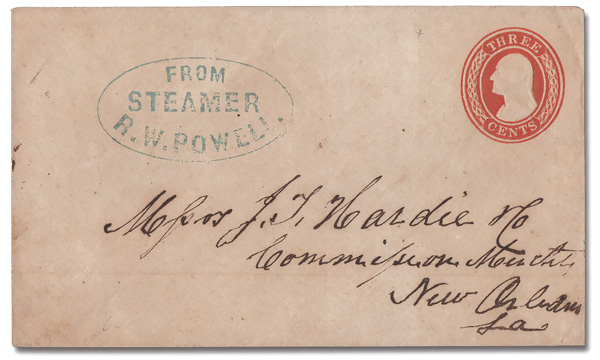 FROM
STEAMER
R.W. POWELL.
THREE
CENTS
Messrs J. T. Hardie & Co
Commission Mercht,
New Orleans
La